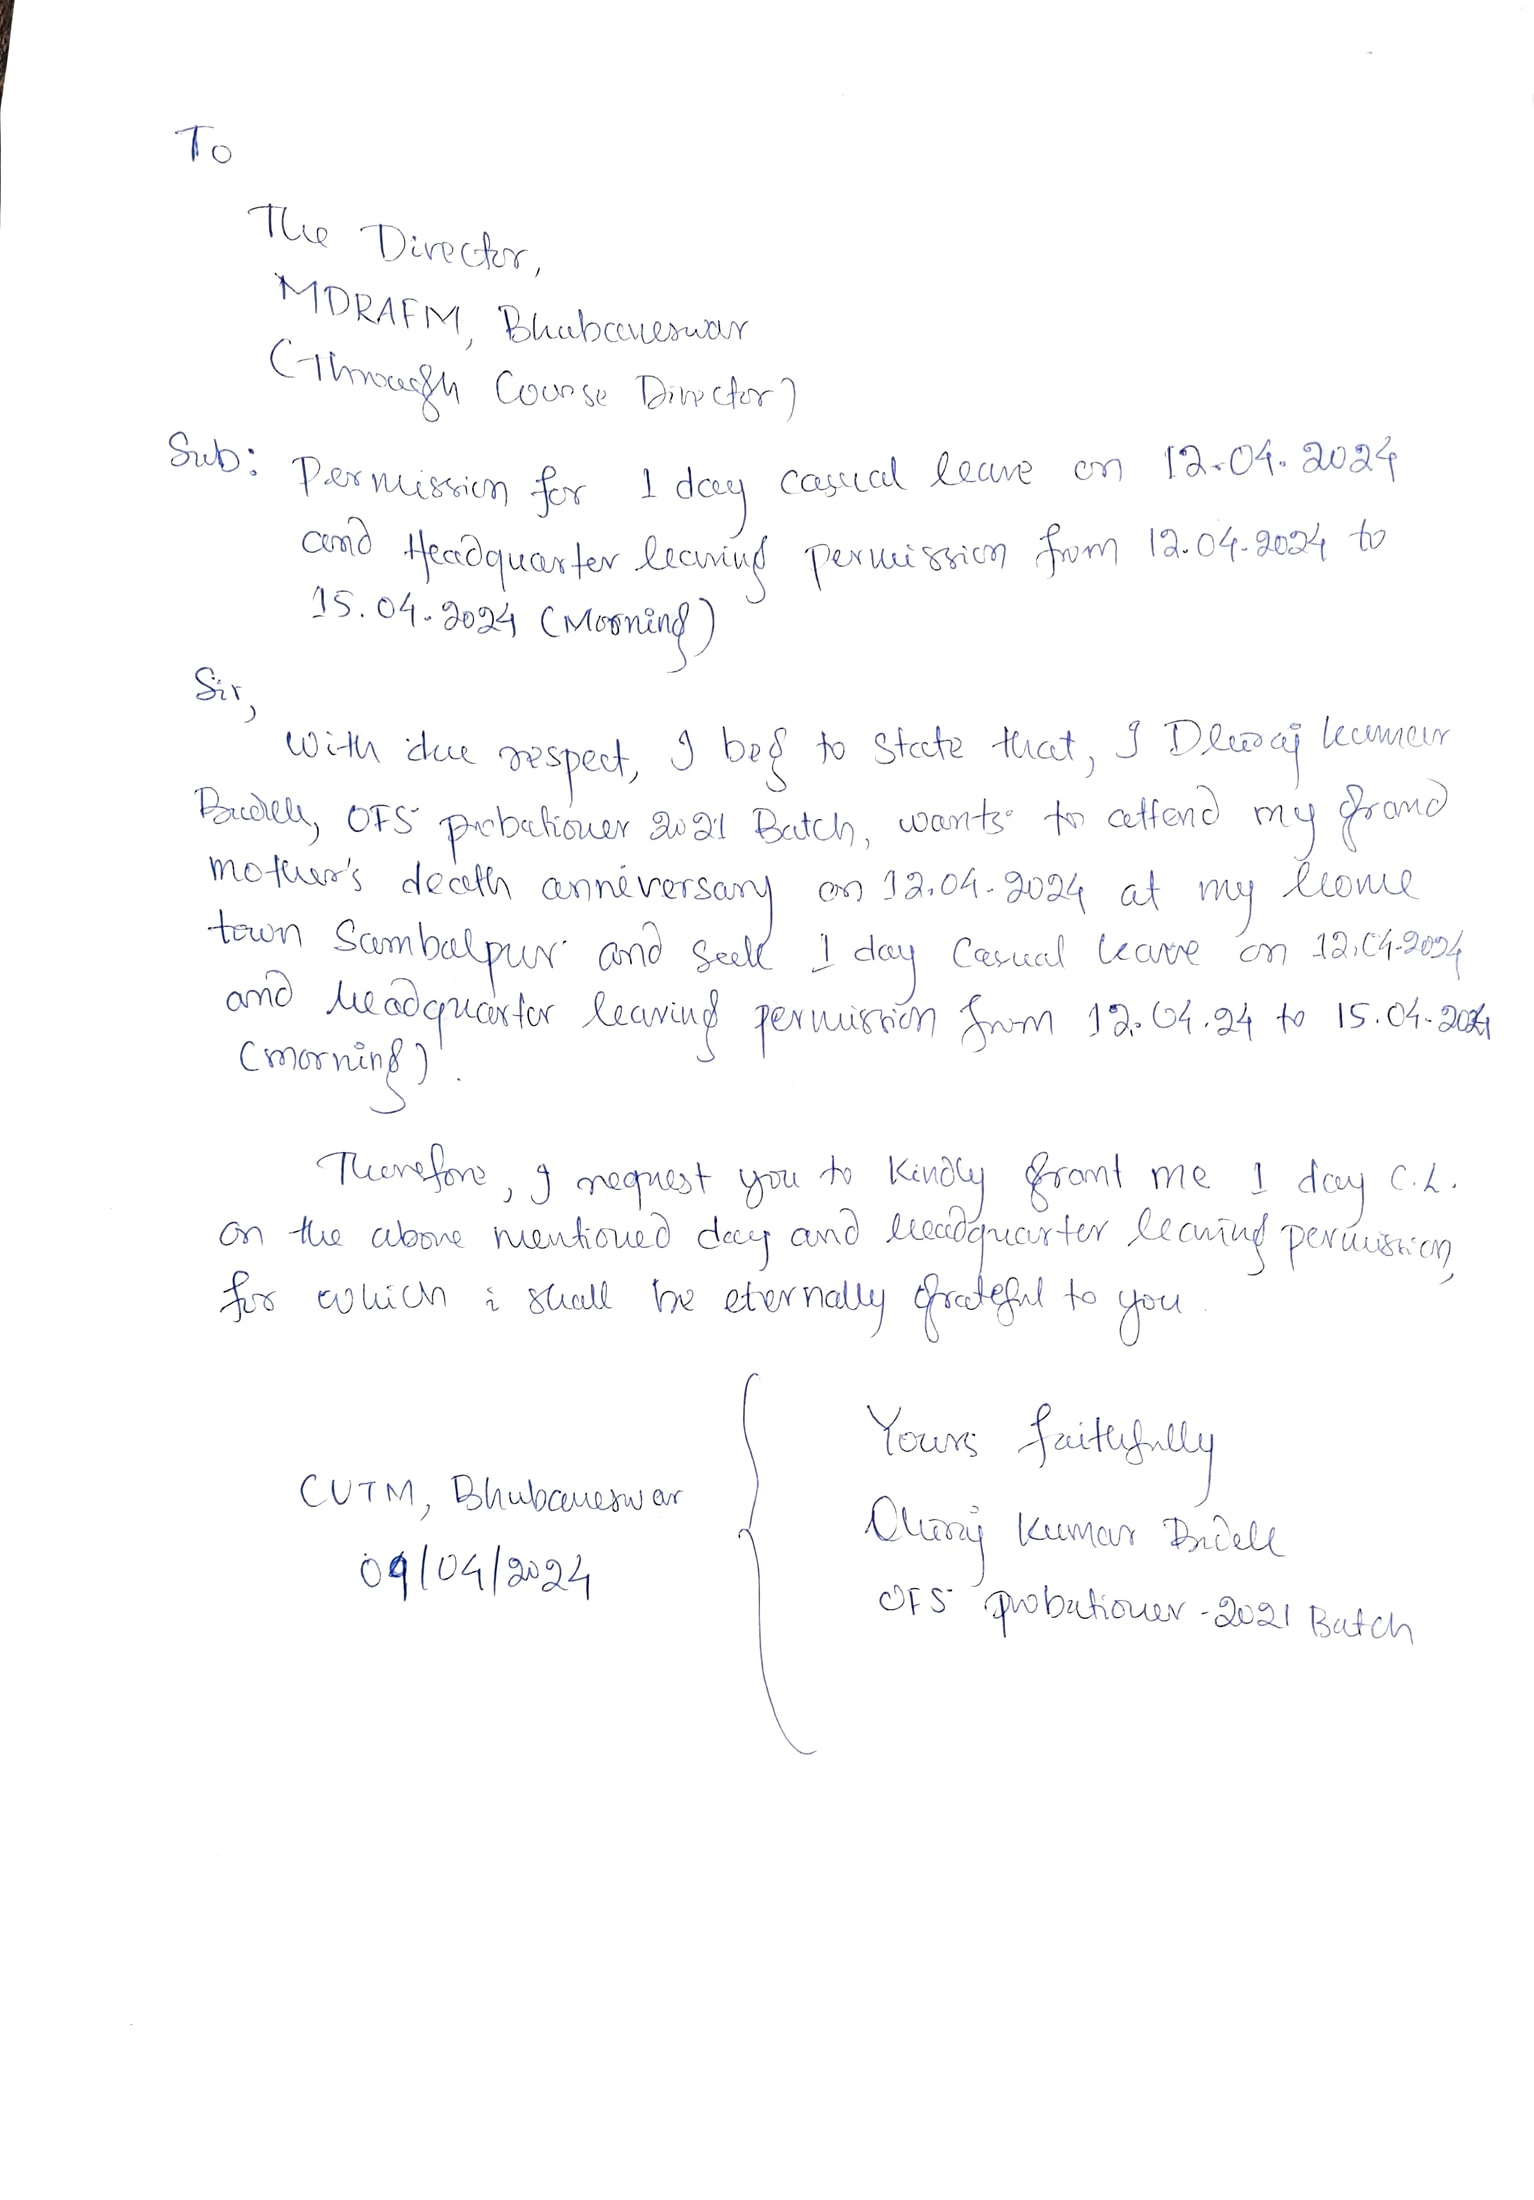 To
The Director,
MDRAFM, Bhubaneswar
(Through Course Director)
Sub: Permission for 1 day casual leave on 12.04.2024
and Headquarter leaving permission from 12.04.2024 to
15.04.2024 (Morning)
Sir,
With due respect, I beg to state that, I Dhiraj Kumar
OFS probationer 2021 Batch, wants to attend my grand
mother's death anniversary on 12.04.2024 at my home
town Sambalpur and seek 1 day Casual leave on 12.04.2024
and headquarter leaving permission from 12.04.24 to 15.04.2024
(morning).
Therefore, I request you to kindly grant me 1 day C.L.
on the above mentioned day and headquarter leaving permission,
for which i shall be eternally grateful to you.
Yours faithfully
CUTM, Bhubaneswar
Dhiraj Kumar
09/04/2024
OFS probationer - 2021 Batch